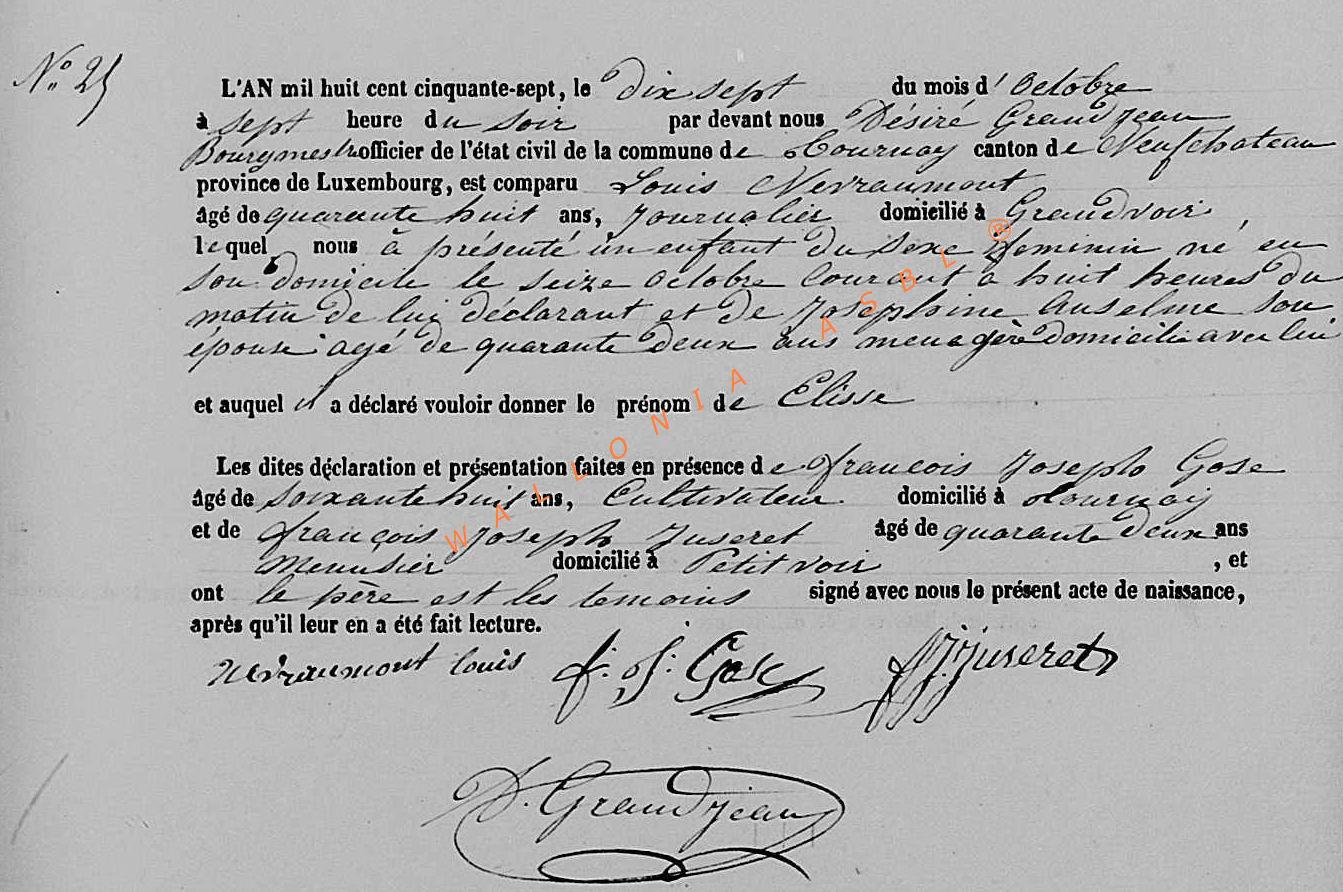 N° 25
L'AN mil huit cent cinquante-sept, le dix sept du mois d' Octobre
à sept heure du soir par devant nous Désiré Grandjean
Bourgmestre officier de l'état civil de la commune de Tournay canton de Neufchateau
province de Luxembourg, est comparu Louis Nevraumont
âgé de quarante huit ans, Journalier domicilié à Grandvoir,
lequel nous à présenté un enfant du sexe feminin né en
son domicile le seize octobre courant à huit heures du
matin de lui déclarant et de Josephine Anselme son
épouse agé de quarante deux ans menagère domicilié avec lui
et auquel il a déclaré vouloir donner le prénom de Elisse
Les dites déclaration et présentation faites en présence de francois Joseph Gose
âgé de soixante huit ans, Cultivateur domicilié à Tournay
et de françois Joseph Juseret âgé de quarante deux ans
Menusier domicilié à Petitvoir, et
ont le père est les temoins signé avec nous le présent acte de naissance,
après qu'il leur en a été fait lecture.
Nevraumont louis f. J. Gose f J. Juseret
D. Grandjean
WALLONIA ASBL ®